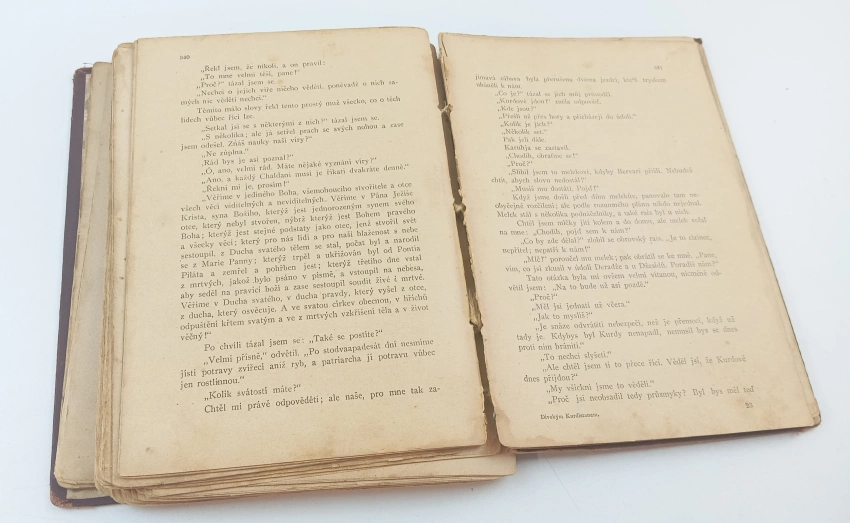 340
„Řekl jsem, že nikoli, a on pravil:
„To mne velmi těší, pane!“
„Proč?“ tázal jsem se.
„Nechci o jejich víře ničeho věděti, poněvadž o nich sa-
mých nic věděti nechci.“
Těmito málo slovy řekl tento prostý muž všecko, co o těch
lidech vůbec říci lze.
„Setkal jsi se s některými z nich?“ tázal jsem se.
„S několika; ale já setřel prach se svých nohou a zase
jsem odešel. Znáš nauky naší víry?“
„Ne zúplna.“
„Rád bys je asi poznal?“
„Ó, ano, velmi rád. Máte nějaké vyznání víry?“
„Ano, a každý Chaldaní musí je říkati dvakráte denně.“
„Řekni mi je, prosím!“
„Věříme v jediného Boha, všemohoucího stvořitele a otce
všech věcí viditelných a neviditelných. Věříme v Pána Ježíše
Krista, syna Božího, kterýž jest jednorozeným synem svého
otce, který nebyl stvořen, nýbrž kterýž jest Bohem pravého
Boha; kterýž jest stejné podstaty jako otec, jenž stvořil svět
a všecky věci; který pro nás lidi a pro naši blaženost s nebe
sestoupil, z Ducha svatého tělem se stal, počat byl a narodil
se z Marie Panny; kterýž trpěl a ukřižován byl od Pontia
Piláta a zemřel a pohřben jest; kterýž třetího dne vstal
z mrtvých, jakož bylo psáno v písmě, a vstoupil na nebesa,
aby seděl na pravici boží a zase sestoupil soudit živé i mrtvé.
Věříme v Ducha svatého, v ducha pravdy, který vyšel z otce,
z ducha, který osvěcuje. A ve svatou církev obecnou, v hříchů
odpuštění křtem svatým a ve z mrtvých vzkříšení těla a v život
věčný!“
Po chvíli tázal jsem se: „Také se postíte?“
„Velmi přísně,“ odvětil. „Po stodvaapadesát dní nesmíme
jísti potravy zvířecí aniž ryb, a patriarcha jí potravu vůbec
jen rostlinnou.“
„Kolik svátostí máte?“
Chtěl mi právě odpověděti; ale naše, pro mne tak za-
341
jímavá zábava byla přerušena dvěma jezdci, kteří tryskem
uháněli k nám.
„Co je?“ tázal se jich můj průvodčí.
„Kurdové jdou!“ zněla odpověď.
„Kde jsou?“
„Přešli už přes hory a přicházejí do údolí.“
„Kolik je jich?“
„Několik set.“
Pak jeli dále.
Karuhja se zastavil.
„Chodih, obraťme se!“
„Proč?“
„Slíbil jsem to melekovi, kdyby Bervari přišli. Nebudeš
chtít, abych slovu nedostál?“
„Musíš mu dostáti. Pojď!“
Když jsme došli před dům melekův, panovalo tam ne-
obyčejné rozčilení; ale podle rozumného plánu nikdo nejednal.
Melek stál s několika podnáčelníky, a také raïs byl u nich.
Chtěl jsem mlčky jíti kolem a do domu, ale melek zvolal
na mne: „Chodih, pojď sem k nám!“
„Co by zde dělal?“ zlobil se obrovský raïs. „Je to cizinec,
nepřítel; nepatří k nám!“
„Mlč!“ poroučel mu melek; pak obrátil se ke mně. „Pane,
vím, co jsi zkusil v údolí Deradže a u Džesidů. Poradíš nám?“
Tato otázka byla mi ovšem velmi vítanou, nicméně od-
větil jsem: „Na to bude už asi pozdě.“
„Proč?“
„Měl jsi jednati už včera.“
„Jak to myslíš?“
„Je snáze odvrátiti nebezpečí, než je přemoci, když už
tady je. Kdybys byl Kurdy nenapadl, nemusil bys se dnes
proti nim brániti.“
„To nechci slyšeti.“
„Ale chtěl jsem ti to přece říci. Věděl jsi, že Kurdové
dnes přijdou?“
„My všickni jsme to věděli.“
„Proč jsi neobsadil tedy průsmyky? Byl bys měl teď
Divokým Kurdistanem.
23